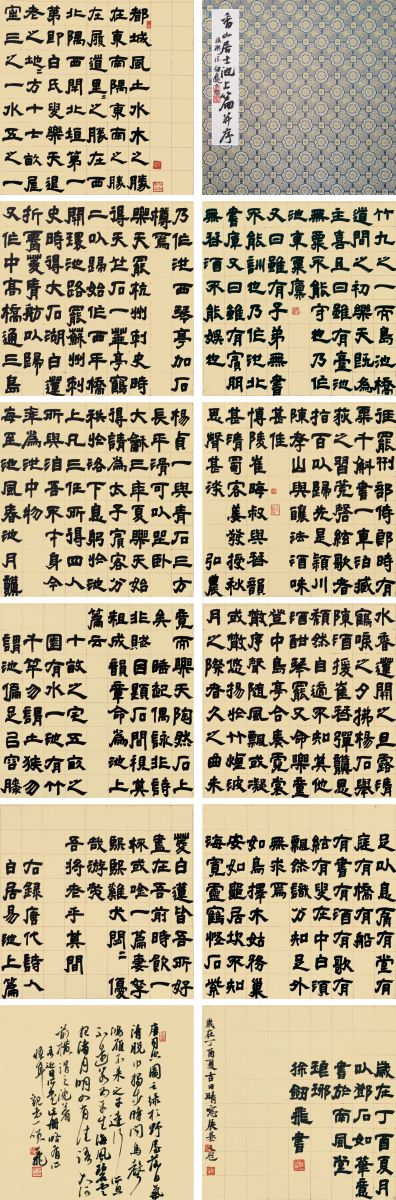 香山居士池上篇并序
都城風土水木之勝
在東南隅東南之勝
在履道里之勝在西
北隅西閈北垣第一
第即白氏叟樂天退
老之地方十七畝屋
室三之一水五之一
竹九之一而島池橋
道間之初樂天既為
主喜且曰雖有臺池
無粟不能守也乃作
池東粟廩
又曰雖有子弟無書
不能訓也乃作池北
書庫又曰雖有賓朋
無琴酒不能娛也
乃作池西琴亭加石
樽焉
樂天罷杭州刺史時
得天竺石一華亭鶴
二以歸始作西平橋
開環池路罷蘇州刺
史時得太湖石白蓮
折腰菱青舫以歸
又作中高橋通三島
徑罷刑部侍郎時有
粟千斛書一車洎臧
獲之習筦磬絃歌者
指百以歸先是潁川
陳孝山與釀法酒味
甚佳
博陵崔晦叔與琴韻
甚清蜀客姜發授秋
思聲甚淡弘農
楊貞一與青石三方
長平滑可以坐臥
大龢三年夏樂天始
得請為太子賓客分
秩於洛下息躬於池
上凡三任所得四人
所與洎吾不才身今
率為池中物
每至池風春池月龝
水香蓮開之旦露清
鶴唳之夕拂楊石舉
陳酒援崔琴彈龝思
頹然自適不知其他
酒酣琴罷又命樂童
登中島亭合奏霓裳
散序聲隨風飄或凝
或散悠揚於竹煙波
月之際者久之曲未
竟而樂天陶然石上
矣睡起偶詠非詩
非賦因題石間視其
粗成韻章命為池上
篇云
十畝之宅五畝之
園有水一池有竹
千竿勿謂土狹勿
謂地偏足以容膝
足以息肩有堂有
庭有橋有船
有書有酒有歌有
絃有叟在中白須
飄然識分知足外
無求焉
如鳥擇木姑務巢
安如龜居坎不知
海寬靈鶴怪石紫
菱白蓮皆吾所好
盡在吾前時飲一
杯或吟一篇妻孥
熙熙雞犬閒閒優
哉游哉
吾將老乎其間
右錄唐代詩人
白居易池上篇
歲在丁酉夏月
以鄧石如筆意
書於南風堂
琅琊
徐釗飛書